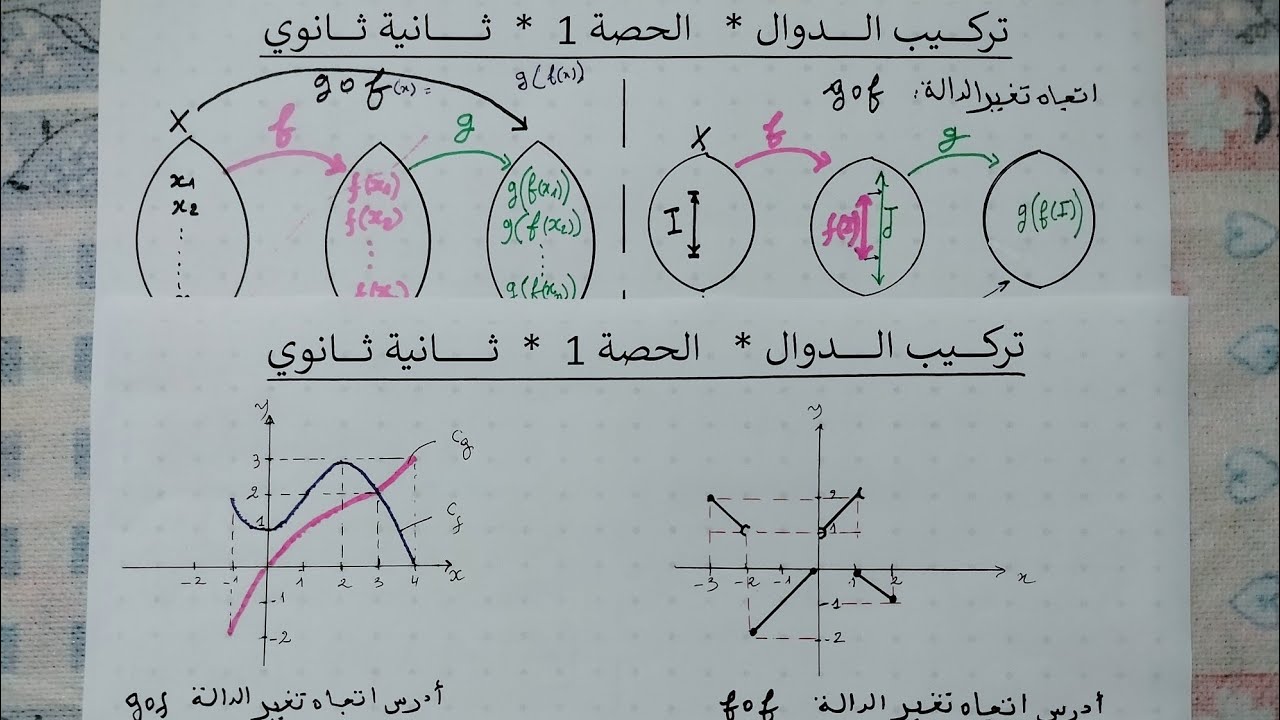 تركيب الدوال * الحصة 1 * ثانية ثانوي
gof(x) = g(f(x))
X f g
x1 f(x1) g(f(x1))
x2 f(x2) g(f(x2))
f(xn) g(f(xn))
اتجاه تغير الدالة: gof
X f g
I f(I) J g(f(I))
تركيب الدوال * الحصة 1 * ثانية ثانوي
y
Cg
3
2
Cf
1
-2 -1 1 2 3 4 x
-1
-2
أدرس اتجاه تغير الدالة gof
y
2
1
-3 -2 -1 1 2 x
-1
-2
أدرس اتجاه تغير الدالة: fof